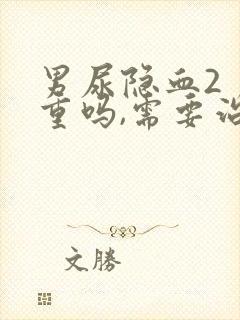 男尿隐血2
重吗,需要治
文勝